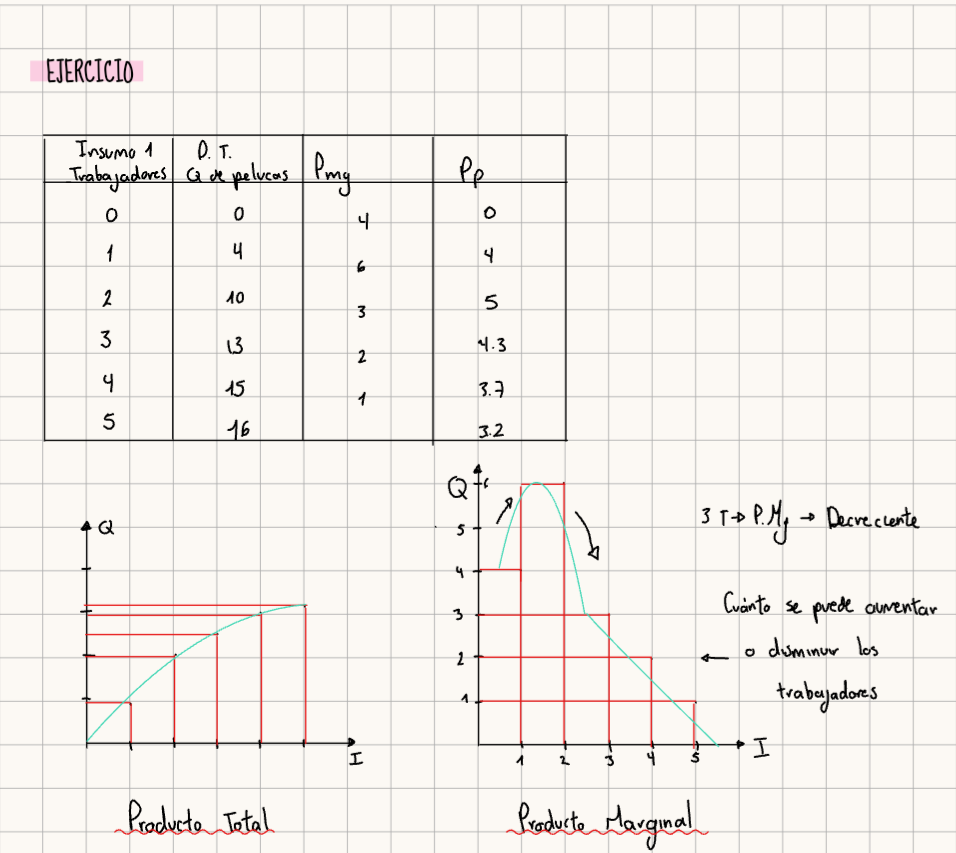 EJERCICIO
Insumo 1 P.T. Pmg Pp
Trabajadores Q de pelucas
0 0 4 0
1 4 6 4
2 10 3 5
3 13 2 4.3
4 15 1 3.7
5 16 3.2
Q
I
Producto Total
Q 6
5
4
3
2
1
1 2 3 4 5 I
Producto Marginal
3 T→ P.Mg → Decreciente
Cuánto se puede aumentar
← o disminuir los
trabajadores